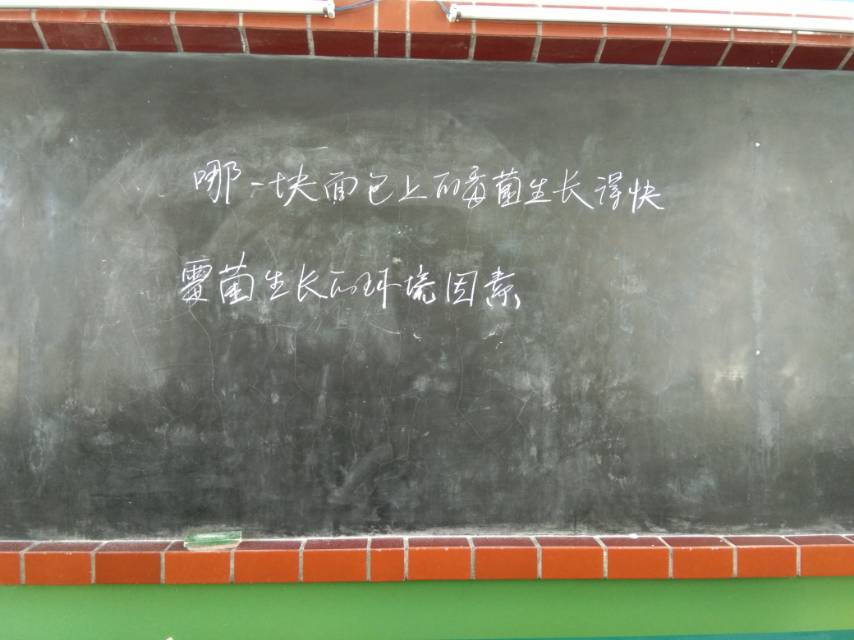 哪一块面包上的霉菌生长得快
霉菌生长的环境因素